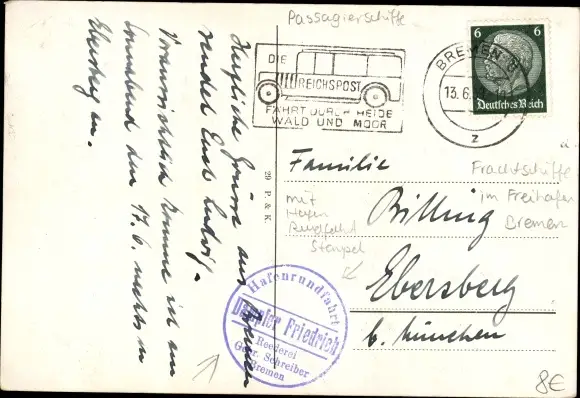 Passagierschiffe
Herzliche Grüsse aus Bremen
sendet Euch Ludwig.
Voraussichtlich komme ich am
Sonnabend den 17.6. nachts in
Ebersberg an.
DIE
REICHSPOST
FÄHRT DURCH HEIDE
WALD UND MOOR
BREMEN 5
13.6.
z
6 6
Deutsches Reich
29 P. & K.
Familie
Billing
Ebersberg
b. München
Frachtschiffe
im Freihafen
Bremen
mit
Hafen
Rundfahrt
Stempel
Hafenrundfahrt
Dampfer Friedrich
Reederei
Gebr. Schreiber
Bremen
8€